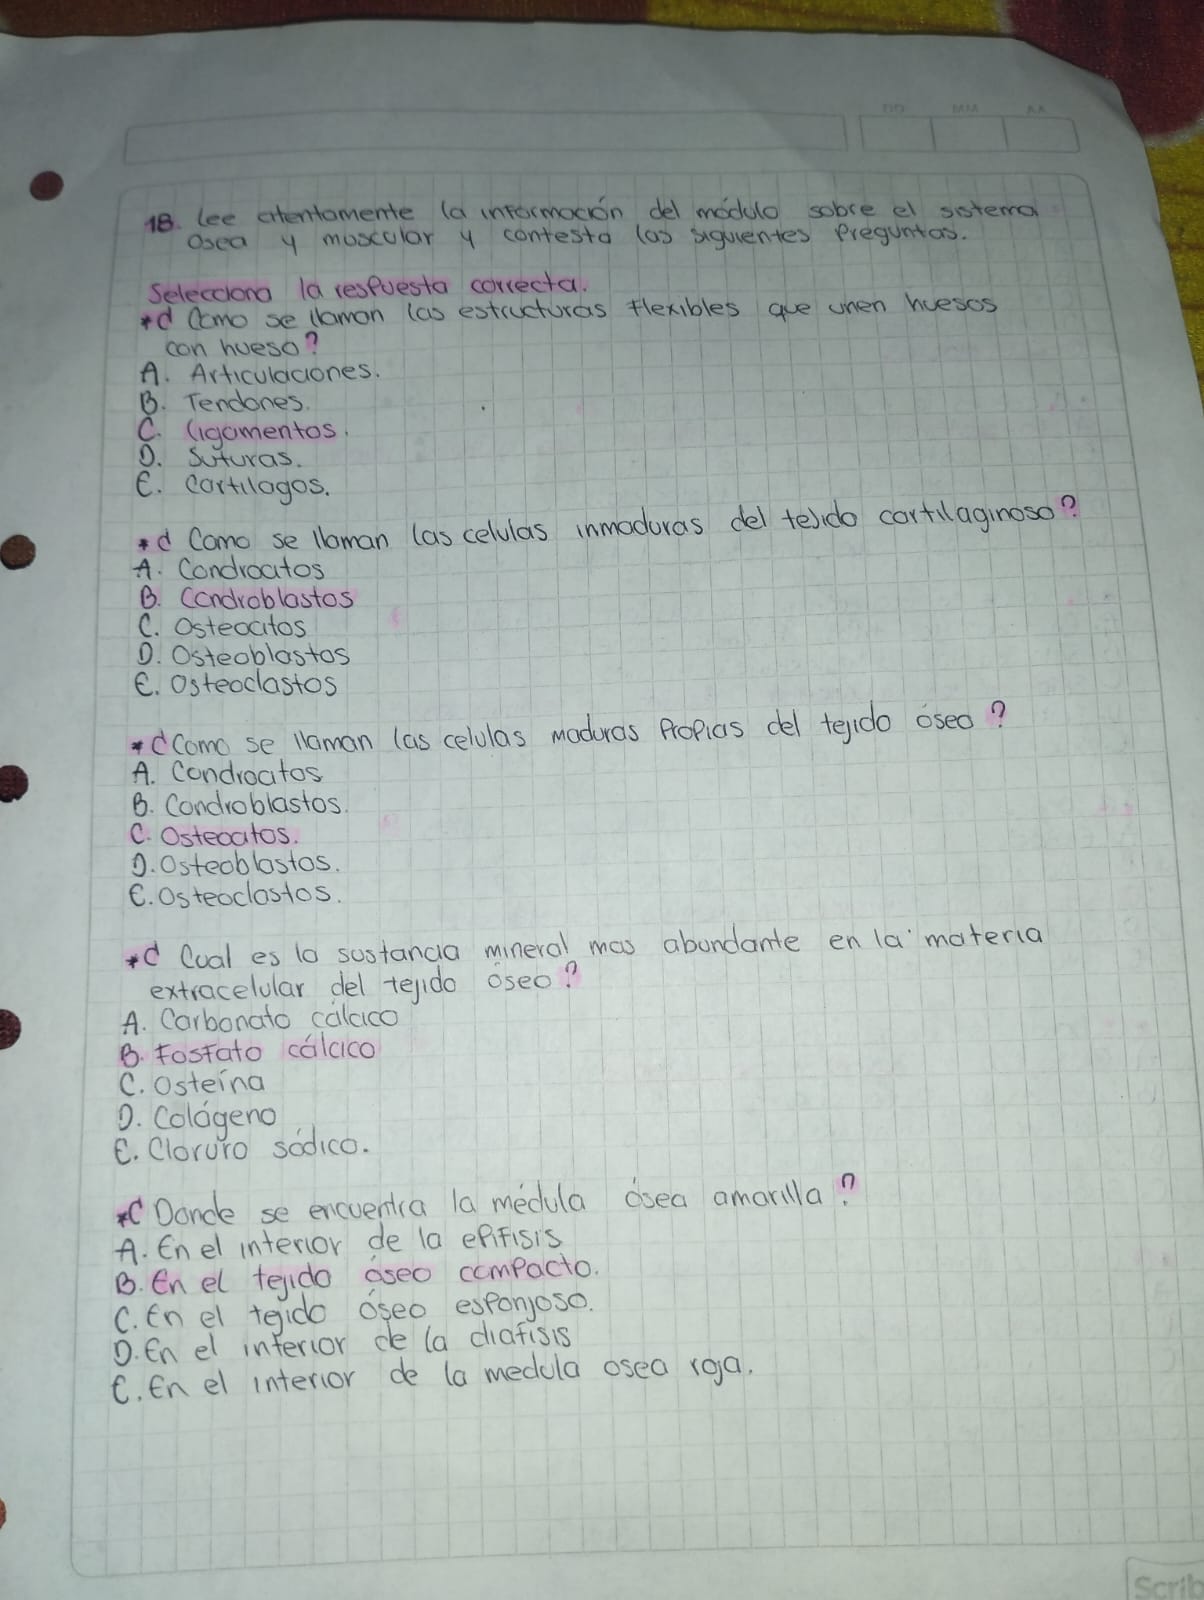 DD MM AA
18. Lee atentamente la información del módulo sobre el sistema
Osea y muscular y contesta las siguientes Preguntas.
Selecciona la resPuesta correcta.
*¿ Como se llaman las estructuras flexibles que unen huesos
con hueso?
A. Articulaciones.
B. Tendones.
C. ligamentos.
D. Suturas.
E. cartilagos.
*¿ Como se llaman las celulas inmaduras del tejido cartilaginoso?
A. Condrocitos
B. Condroblastos
C. Osteocitos
D. Osteoblastos
E. Osteoclastos
*¿Como se llaman las celulas maduras Propias del tejido óseo?
A. Condrocitos
B. Condroblastos.
C. Osteocitos.
D. Osteoblastos.
E. Osteoclastos.
*¿ Cual es la sustancia mineral mas abundante en la materia
extracelular del tejido óseo?
A. Carbonato cálcico
B. Fosfato cálcico
C. Osteína
D. Colágeno
E. Cloruro sódico.
*¿Donde se encuentra la médula ósea amarilla?
A. En el interior de la ePifisis
B. En el tejido óseo comPacto.
C. En el tejido óseo esPonjoso.
D. En el interior de la diafisis
E. En el interior de la medula osea roja.
Scrib